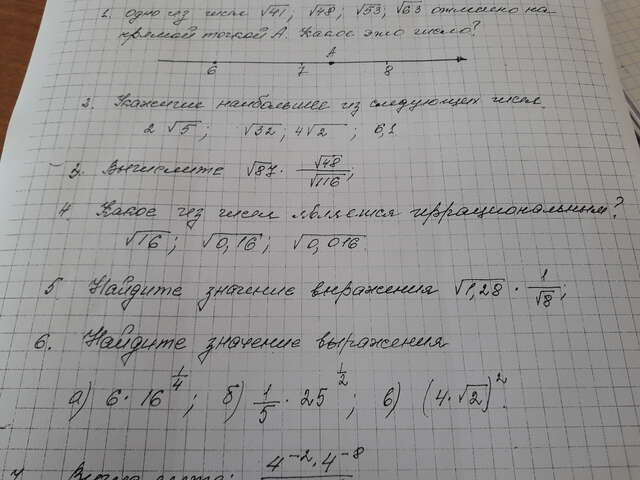 1. Одно из чисел √41; √48; √53; √63 отмечено на
прямой точкой А. Какое это число?
A
6 7 8
2. Укажите наибольшее из следующих чисел.
2√5; √32; 4√2; 6,1
3. Вычислите √87 · √48/√116;
4. Какое из чисел является иррациональным?
√16; √0,16; √0,016.
5 Найдите значение выражения √1,28 · 1/√8;
6. Найдите значение выражения
а) 6 · 16^(1/4); б) 1/5 · 25^(1/2); в) (4·√2)².
4⁻²·4⁻⁸